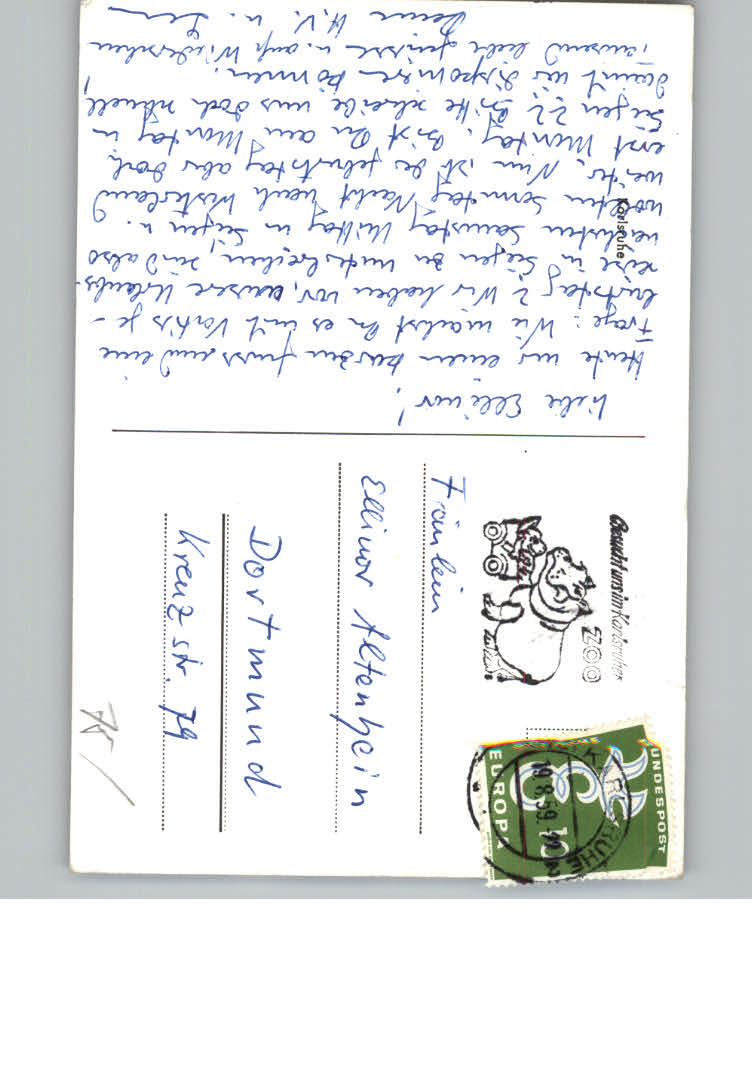 Liebe Ellinor!
Heute nur einen kurzen Gruss und eine
Frage: Wie machst Du es mit Vatis Ge-
burtstag? Wir haben vor, unsere Urlaubs-
reise in Siegen zu unterbrechen, sind also
nächsten Samstag Mittag in Siegen u.
wollten Sonntag Nacht nach Westerland
weiter. Nun ist der Geburtstag aber doch
erst Montag. Bist Du am Montag in
Siegen?? Bitte schreibe uns doch schnell,
damit wir disponieren können.
Tausend liebe Grüsse u. auf Wiedersehen
Deine H.V. u.
Karlsruhe
Besucht uns im Karlsruher
ZOO
KARLSRUHE
19.8.59
UNDESPOST
EUROPA
10
Fräulein
Ellinor Altenhein
Dortmund
Kreuzstr. 79